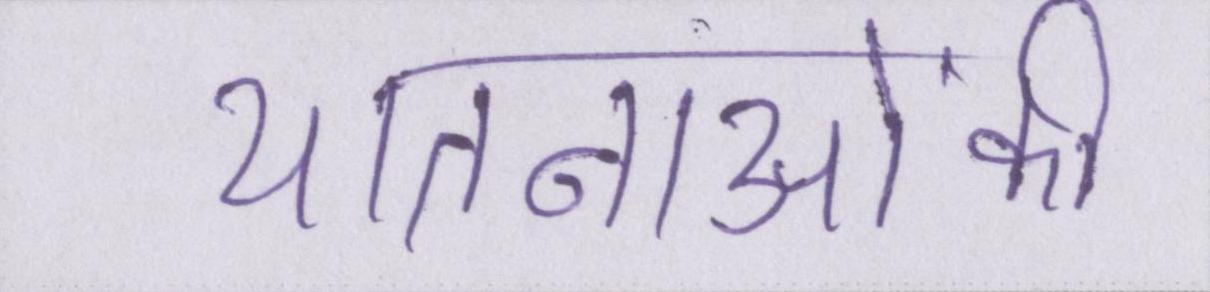 यातनाओं की